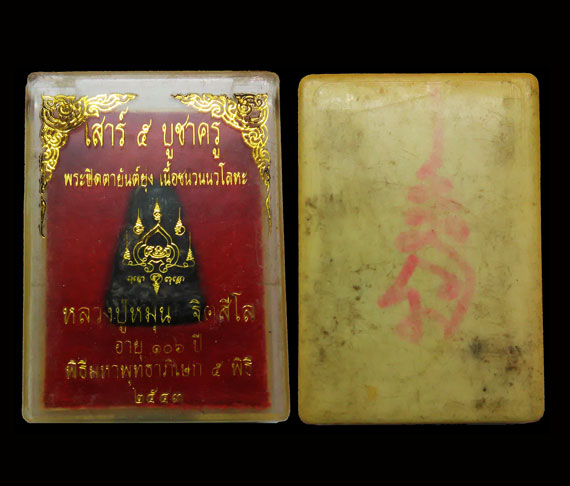 เสาร์ ๕ บูชาครู
พระปิดตายันต์ยุ่ง เนื้อชนวนนวโลหะ
หลวงปู่หมุน ฐิตสีโล
อายุ ๑๐๖ ปี
พิธีมหาพุทธาภิเษก ๕ พิธี
๒๕๔๓